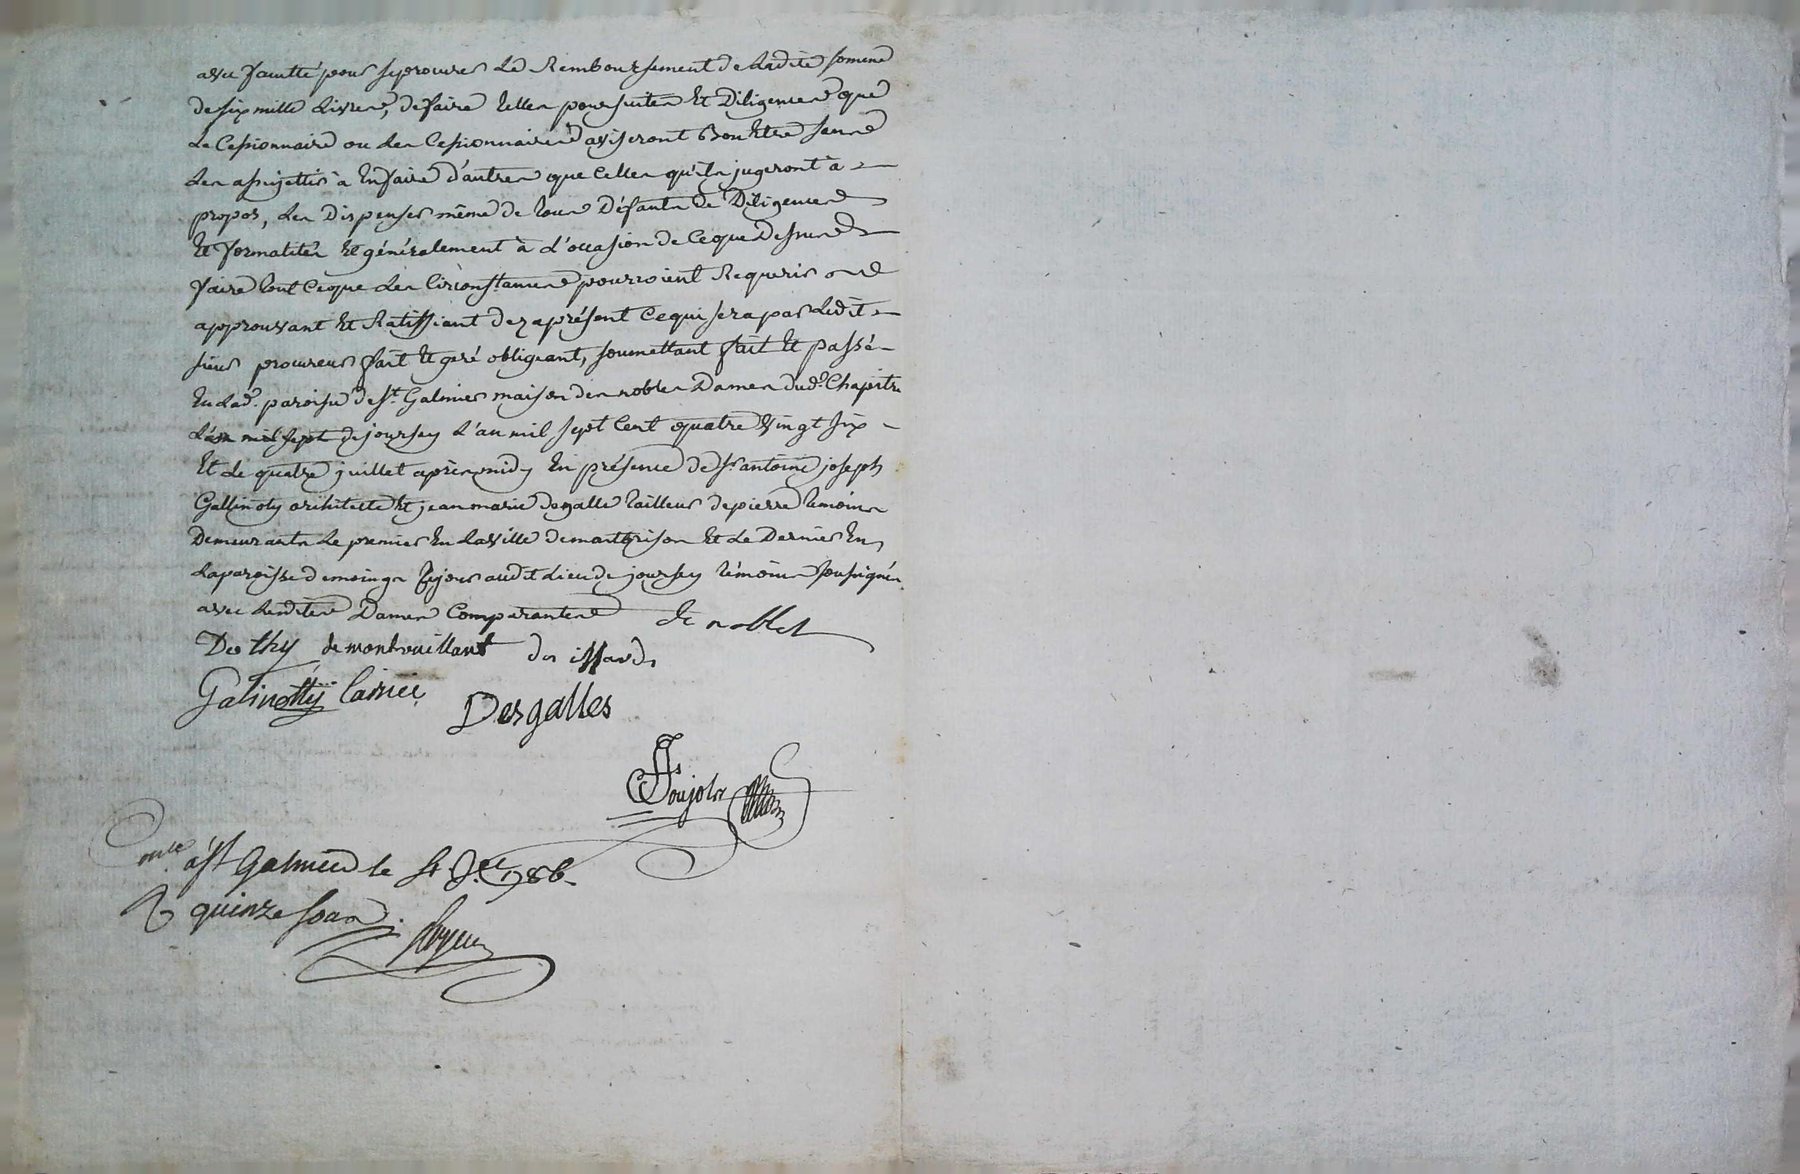 avec faculté pour se procurer le Remboursement de ladite somme
de six mille livres, de faire telles poursuites Et Diligences que
le Cessionnaire ou les Cessionnaires aviseront Bon Etre sans
les assujettir à En faire d'autres que Celles qu'ils jugeront à
propos, les Dispenser même de tous Défauts de Diligences
Et formalités Et généralement à l'occasion de Ceque Dessus
faire tout Ceque les Circonstances pourroient Requerir
approuvant Et Ratiffiant dez aprésent Cequi sera par Ledit
sieur procureur fait Et geré obligeant, soumettant fait Et passé
En lad. paroisse de St. Galmier maison des nobles Dames dud. Chapitre
L'an mil sept de joursey L'an mil sept Cent quatre vingt six
Et le quatre juillet après midy En présence de Sr antoine joseph
Gallinoty architecte Et jean marie degalle tailleur de pierre temoins
Demeurants Le premier En la ville de montbrison Et le Dernier En
La paroisse de moings sejour audit Lieu de joursey témoins soussignés
avec lesdites Dames Comparantes de noblet
De thy de montrouillant des issards
Galinotty l'ainée
Desgalles
Poujols
Con.le à St Galmier le 1786
R quinze sous